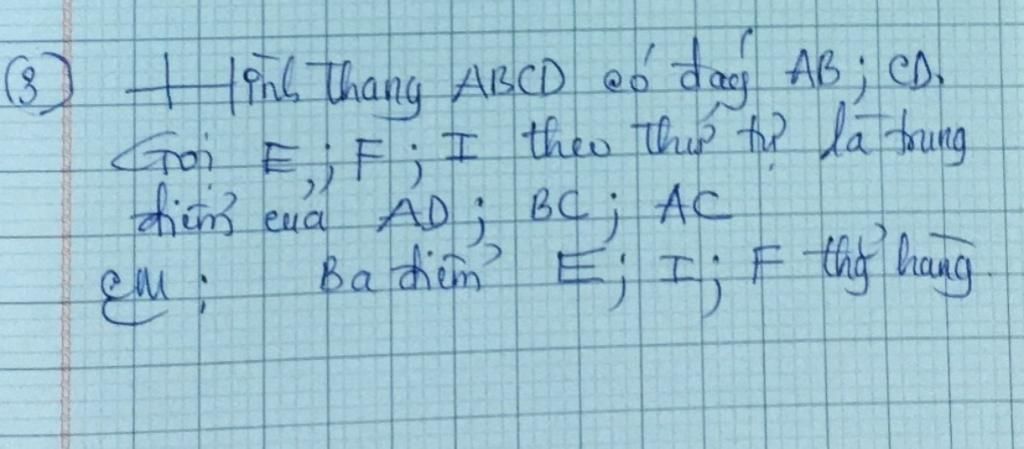 ③ Hình thang ABCD có đáy AB; CD.
Gọi E; F; I theo thứ tự là trung
điểm của AD; BC; AC
CM: Ba điểm E; I; F thẳ hàng.